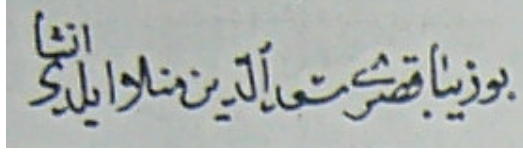 بو زيبا قصرى سعد الدين منلا ايلدي انشا